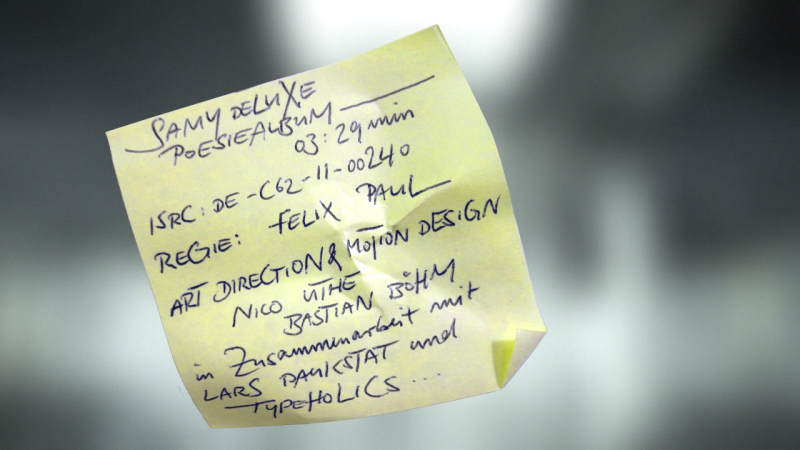 SAMY DELUXE
POESIEALBUM
03:29 min
ISRC: DE-C62-11-00240
REGIE: FELIX PAUL
ART DIRECTION & MOTION DESIGN
NICO UTHE
BASTIAN BÖHM
in Zusammenarbeit mit
LARS DAUKSTAT und
TYPEHOLICS...